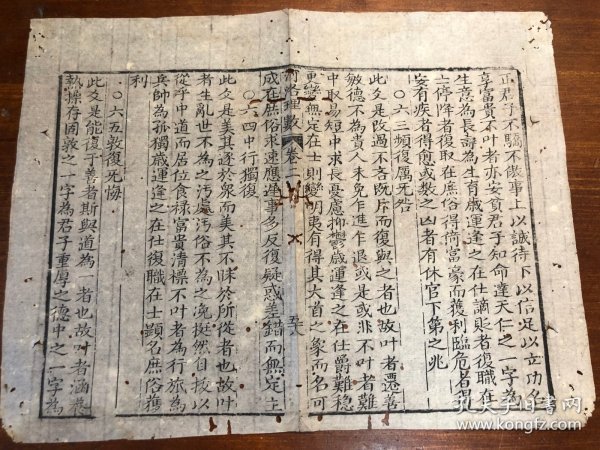 正君子不驕不傲事上以誠待下以信足以立功名
享富貴不叶者亦安貧君子知命達天仁之一字為
生意為長壽為生育歲運逢之在仕謫貶者復職在
士停降者復取在庶俗得倚富豪而獲利臨危者得
安有疾者得愈或数之凶者有休官下第之兆
○六三頻復厲无咎
此爻是改過不吝既斤而復與之者也故叶者遷善
敏德不為貴人未免乍進乍退或是或非不叶者難
中取易短中求長憂慮抑鬱歲運逢之在仕爵難穩
更變無定在士則變明夷有得其大首之象而名可
成在庶俗求速應遲事多反復疑惑差錯而無定主
河洛理數 卷二
○六四中行獨復
此爻是美其逐於泉而美其不昧於所從者也故叶
者生亂世不為之污處污俗不為之浼挺然自拔以
從乎中道而居位食祿富貴清標不叶者為行旅為
兵帥為孤獨歲運逢之在仕復職在士顯名庶俗舊
利
○六五敦復无悔
此爻是能復于善者斯與道為一者也故叶者涵養
執操存固敦之一字為君子重厚之德中之一字為
孔夫子旧书网
www.kongfz.com